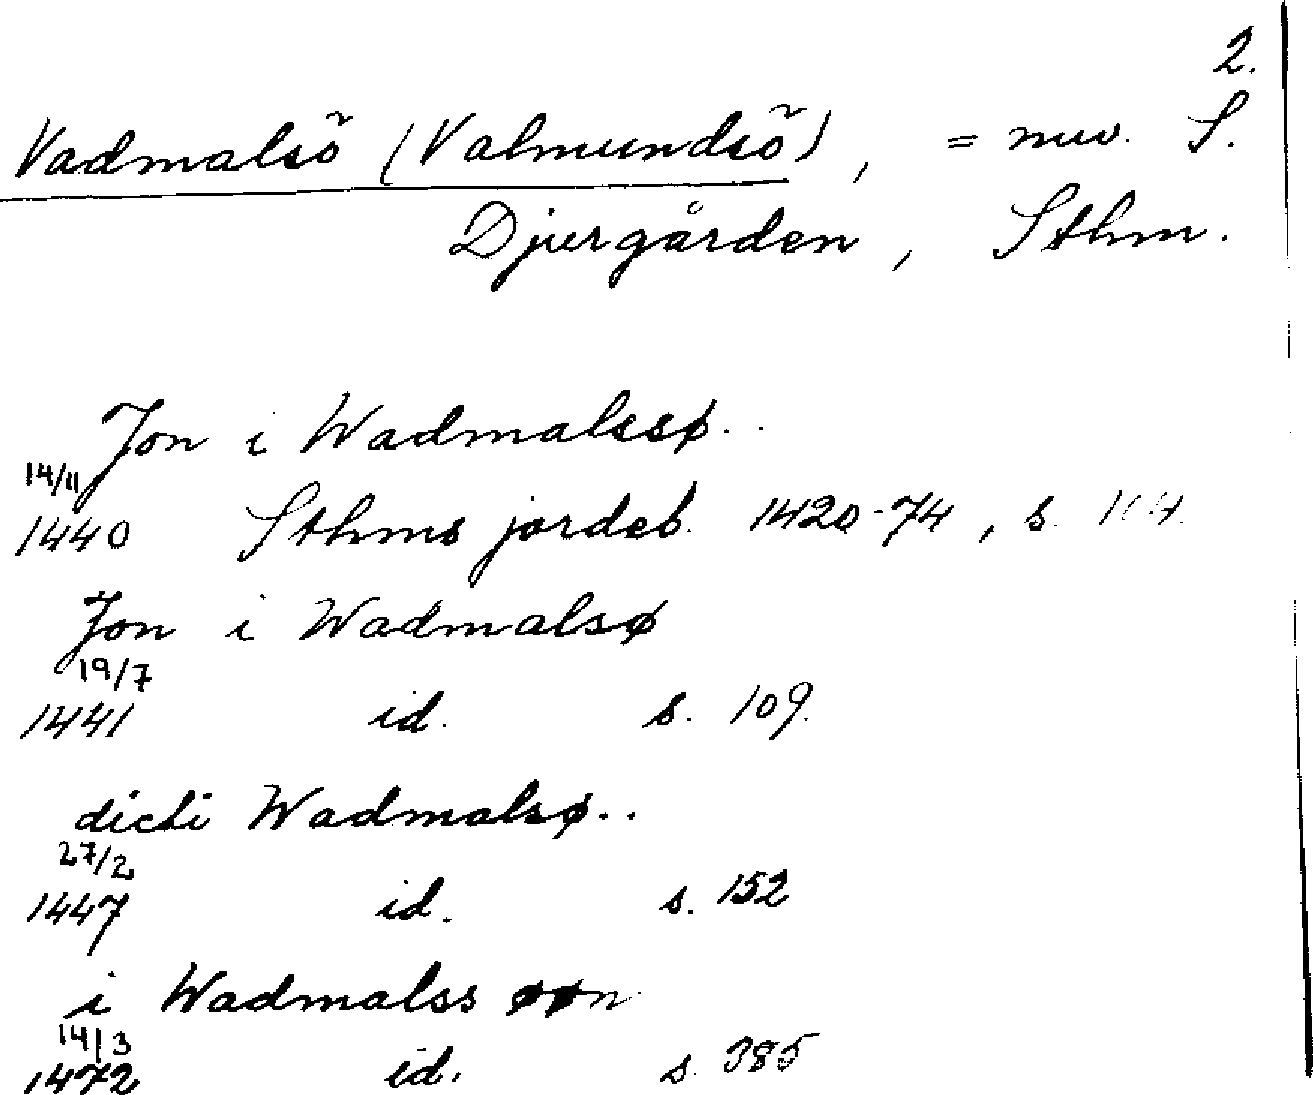 2.
Vadmalsö (Valmundsö), = nuv. S.
Djurgården, Sthm.
Jon i Wadmalssø..
14/11
1440 Sthms jordeb. 1420-74, s.
Jon i Wadmalsø
19/7
1441 id. s. 109.
dicti Wadmalsø..
27/2
1447 id. s. 152
i Wadmalss øøn
14/3
1472 id. s. 385